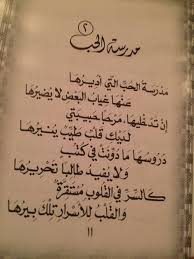 ٢
مدرسة الحب
مدرسة الحب التي أديرها
عنها غياب البعض لا يضيرها
إن تدخليها مرحبا حبيبتي
لديك قلب طيب ينيرها
دروسها ما دونت في كتب
ولا يفيد طالبا تحريرها
كالسر في القلوب مستقرة
والقلب للأسرار تلك بيرها
١١